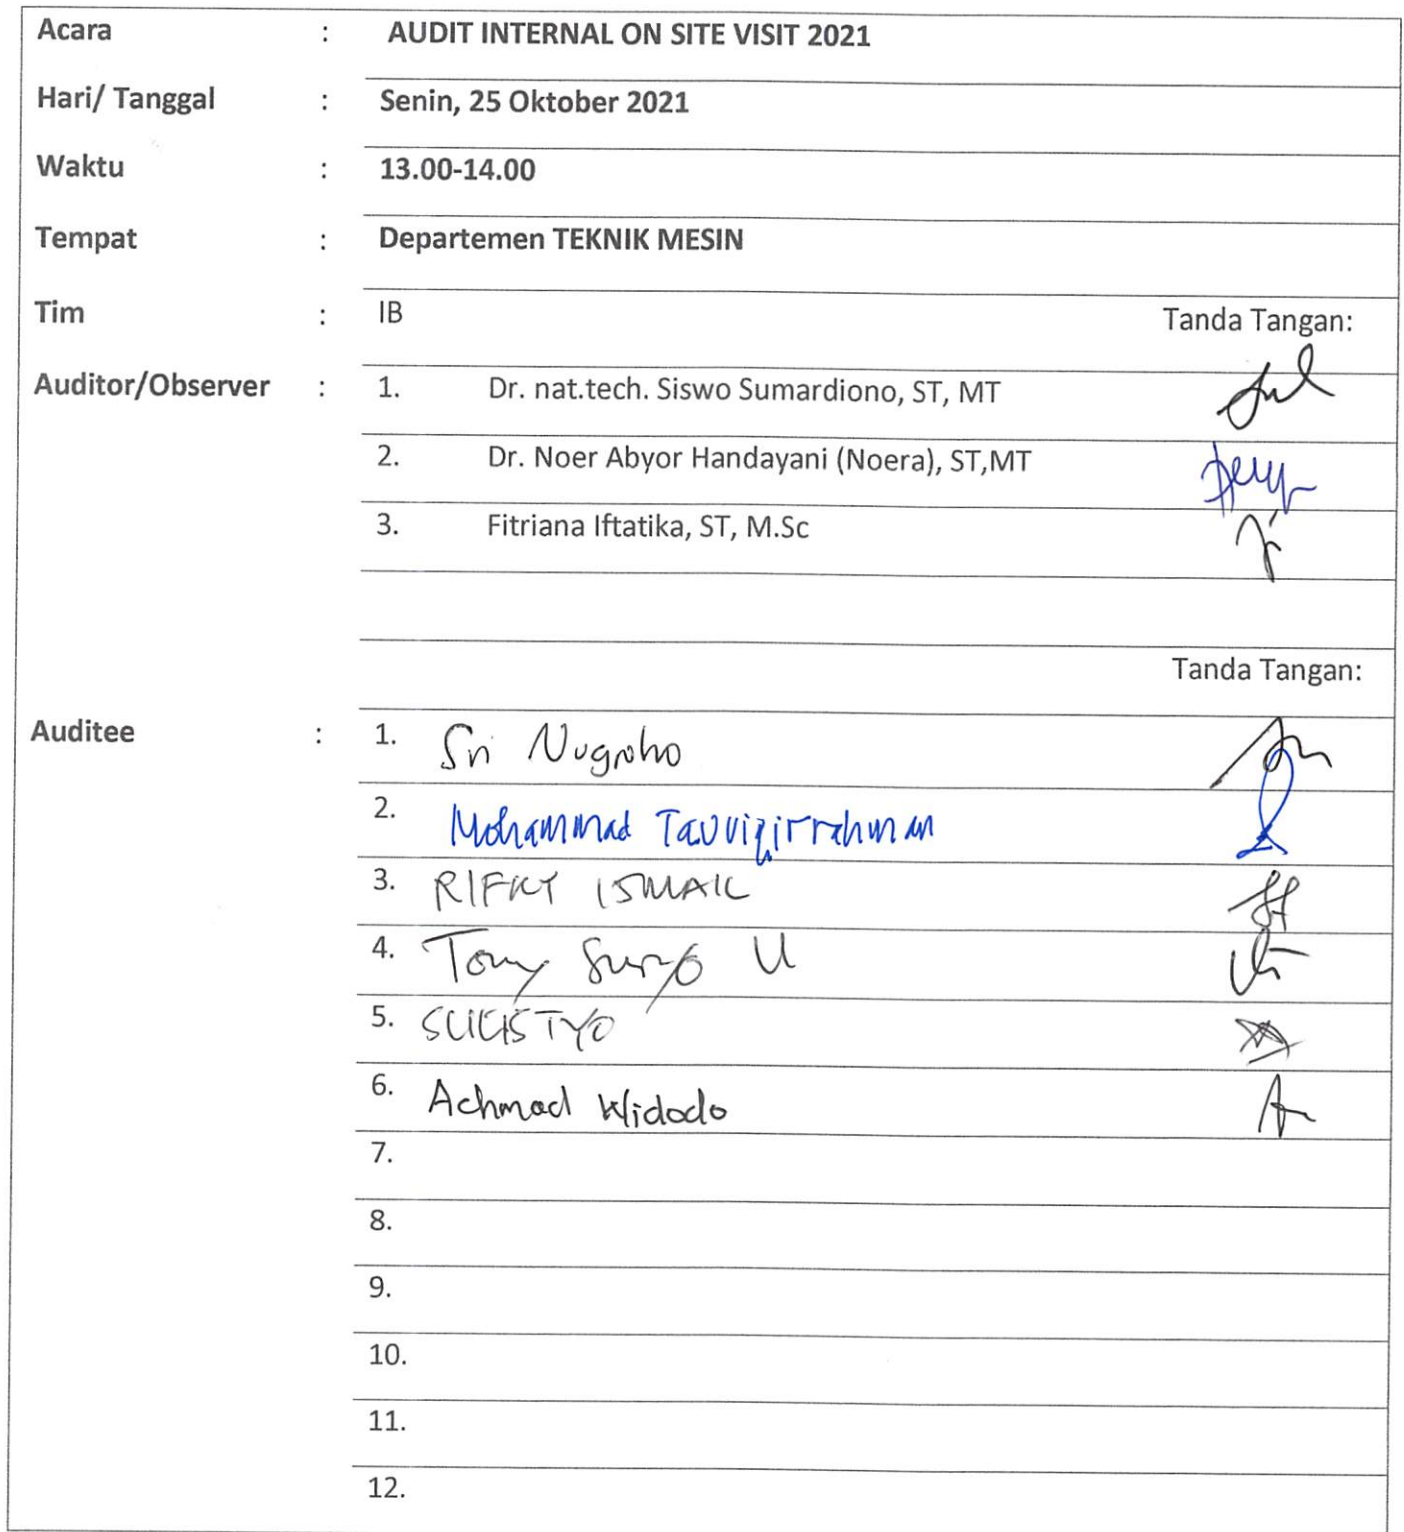 Acara : AUDIT INTERNAL ON SITE VISIT 2021
Hari/ Tanggal : Senin, 25 Oktober 2021
Waktu : 13.00-14.00
Tempat : Departemen TEKNIK MESIN
Tim : IB Tanda Tangan:
Auditor/Observer : 1. Dr. nat.tech. Siswo Sumardiono, ST, MT
2. Dr. Noer Abyor Handayani (Noera), ST,MT
3. Fitriana Iftatika, ST, M.Sc
Tanda Tangan:
Auditee : 1. Sri Nugroho
2. Mohammad Tauviqirrahman
3. RIFKY ISMAIL
4. Tony Suryo U
5. SULISTYO
6. Achmad Widodo
7.
8.
9.
10.
11.
12.